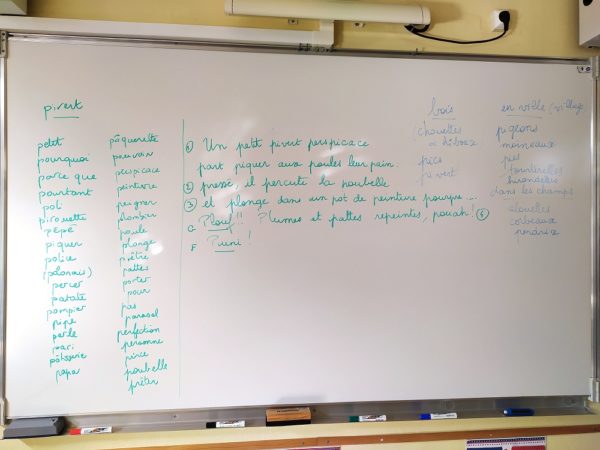 pivert
petit
pourquoi
parce que
pourtant
poli
pirouette
pépé
piquer
police
(polonais)
percer
patate
pompier
pipe
parle
mari
pâtisserie
papa
pâquerette
pouvoir
perspicace
peinture
peigner
plombier
poule
plonge
prêtre
pattes
porter
pour
pas
parasol
perfection
personne
pince
poubelle
prêter
① Un petit pivert perspicace
part piquer aux poules leur pain.
② pressé, il percute la poubelle
③ et plonge dans un pot de peinture pourpre ...
G Plouf!! Plumes et pattes repeintes, pouah! ④
F Puni !
bois
(chouettes
hiboux
pics
pivert
en ville/village
pigeons
moineaux
pies
tourterelles
hirondelles
dans les champs
alouettes
corbeaux
perdrix